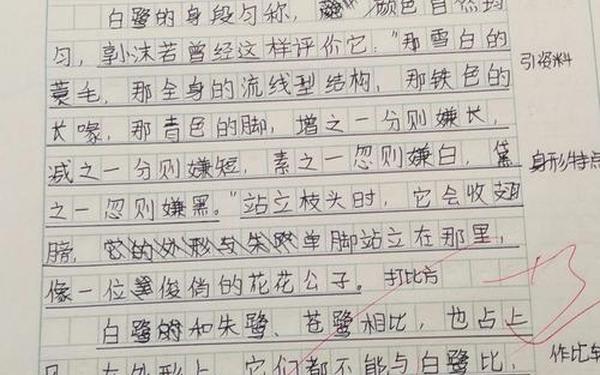 白鹭的身段匀称，颜色自然均
匀，郭沫若曾经这样评价它："那雪白的
蓑毛，那全身的流线型结构，那铁色的
长喙，那青色的脚，增之一分则嫌长，
减之一分则嫌短，素之一忽则嫌白，黛
之一忽则嫌黑。"站立枝头时，它会收翅
膀，单脚站立在那里，
像一位俊俏的花花公子。
白鹭和朱鹭、苍鹭相比，也占上
风，在外形上，它们都不能与白鹭比，
引资料
身形特点
打比方
作比较